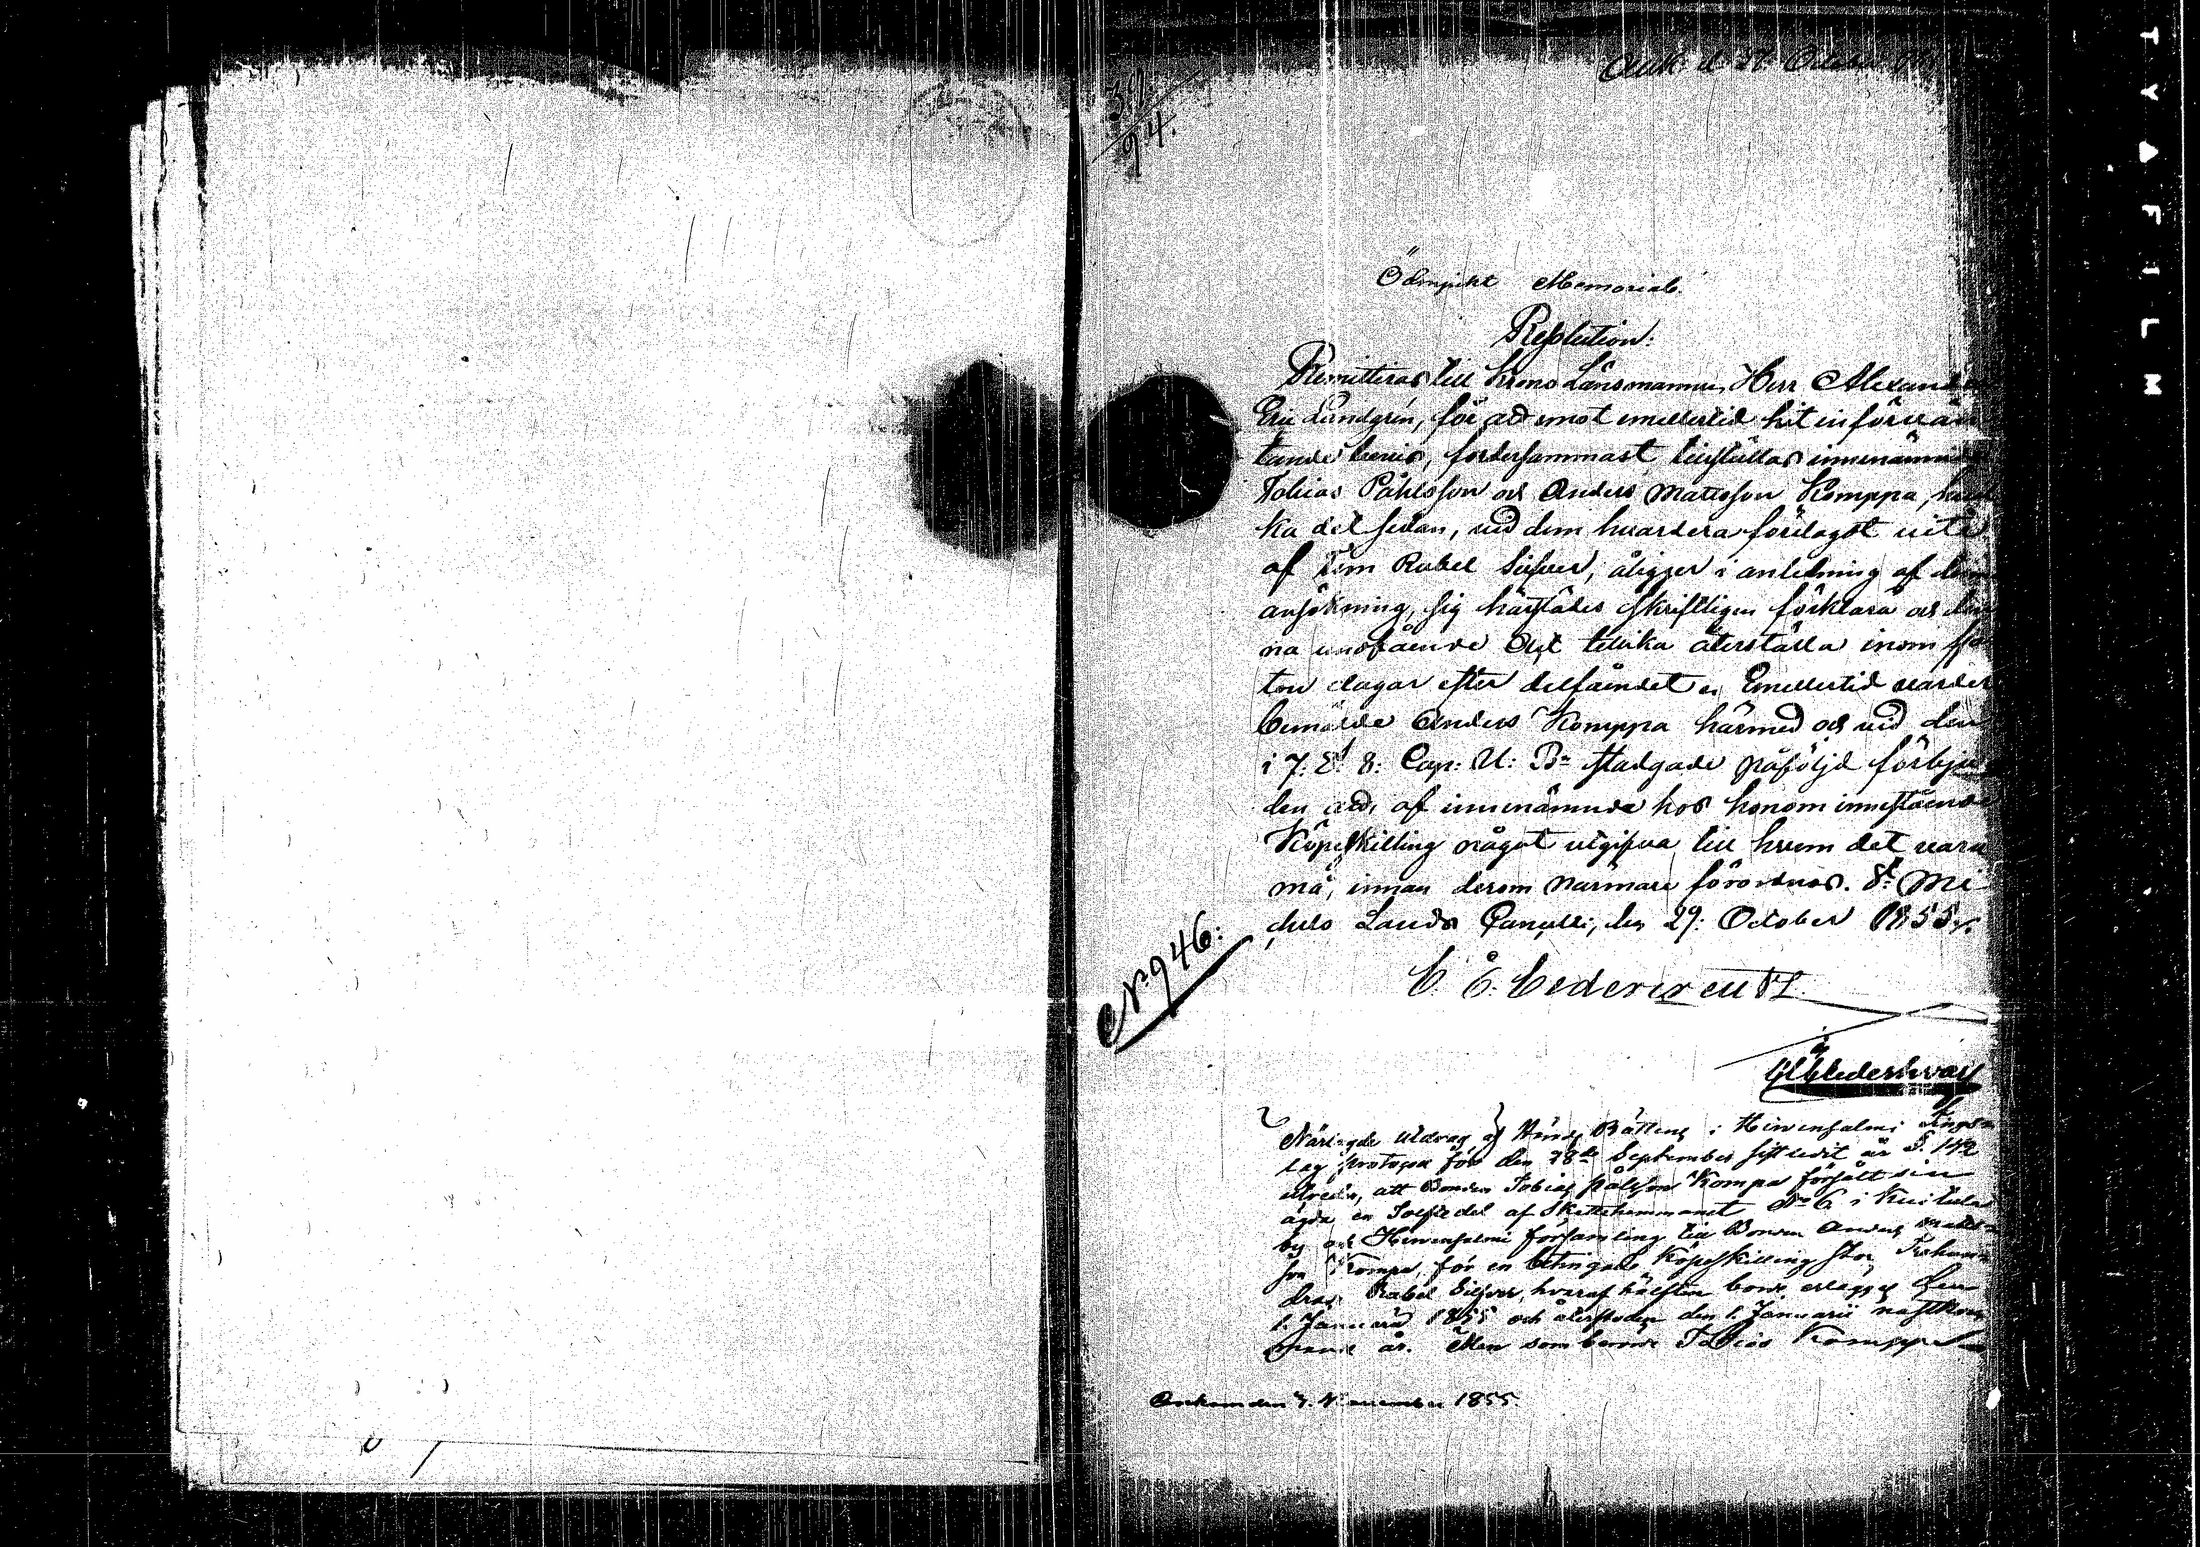 Ank. d. 27 October
39/94.
Ödmjukt Memorial.
Resolution:
Remitteras till Krono Länsmannen, Herr Alexander
Eric Landgrén, för att emot emellertid hit införvän
tande bevis, fordersammast tillställas innenämnde
Tobias Påhlsson och Anders Mattsson Komppa, hvil
ka det sedan, vid dem hvardera förelagdt vite
af Fem Rubel Silfver, åligger i anledning af denna
ansökning, sig härstädes skriftligen förklara och den
na undfående Act tillika återställa inom fjor
ton dagar efter delfåendet. Emellertid varder
bemälde Anders Komppa härmed och vid den
i 7: §. 8: Cap: U: B: stadgade påföljd förbju
den att, af innenämnda hos honom innestående
Köpeskilling något utgifva till hvem det vara
må, innan derom närmare förordnas. St Mi
chels Lands Cancelli, den 29: October 1855.
Nr 946:
C. O. Cedercreutz.
Närlagde utdrag af Härads Rättens i Hirvensalmi Tings
lag protocoll för den 28de September sistledit år §. 142
utvisar, att Bonden Tobias Pålsson Kompa försålt sin
ägda en Tolftedel af Skattehemmanet No 6 i Kuitula
by och Hirvensalmi församling till Bonden Anders Matts
son Kompa, för en betingad Köpeskilling stor Trehun
dra Rubel Silfver, hvaraf hälften borde erläggas den
1. Januarii 1855 och återstoden den 1. Januarii nästkom
mande år. Men som berörde Tobias Komppa
Ankom den 7. November 1855.
TYAFILM